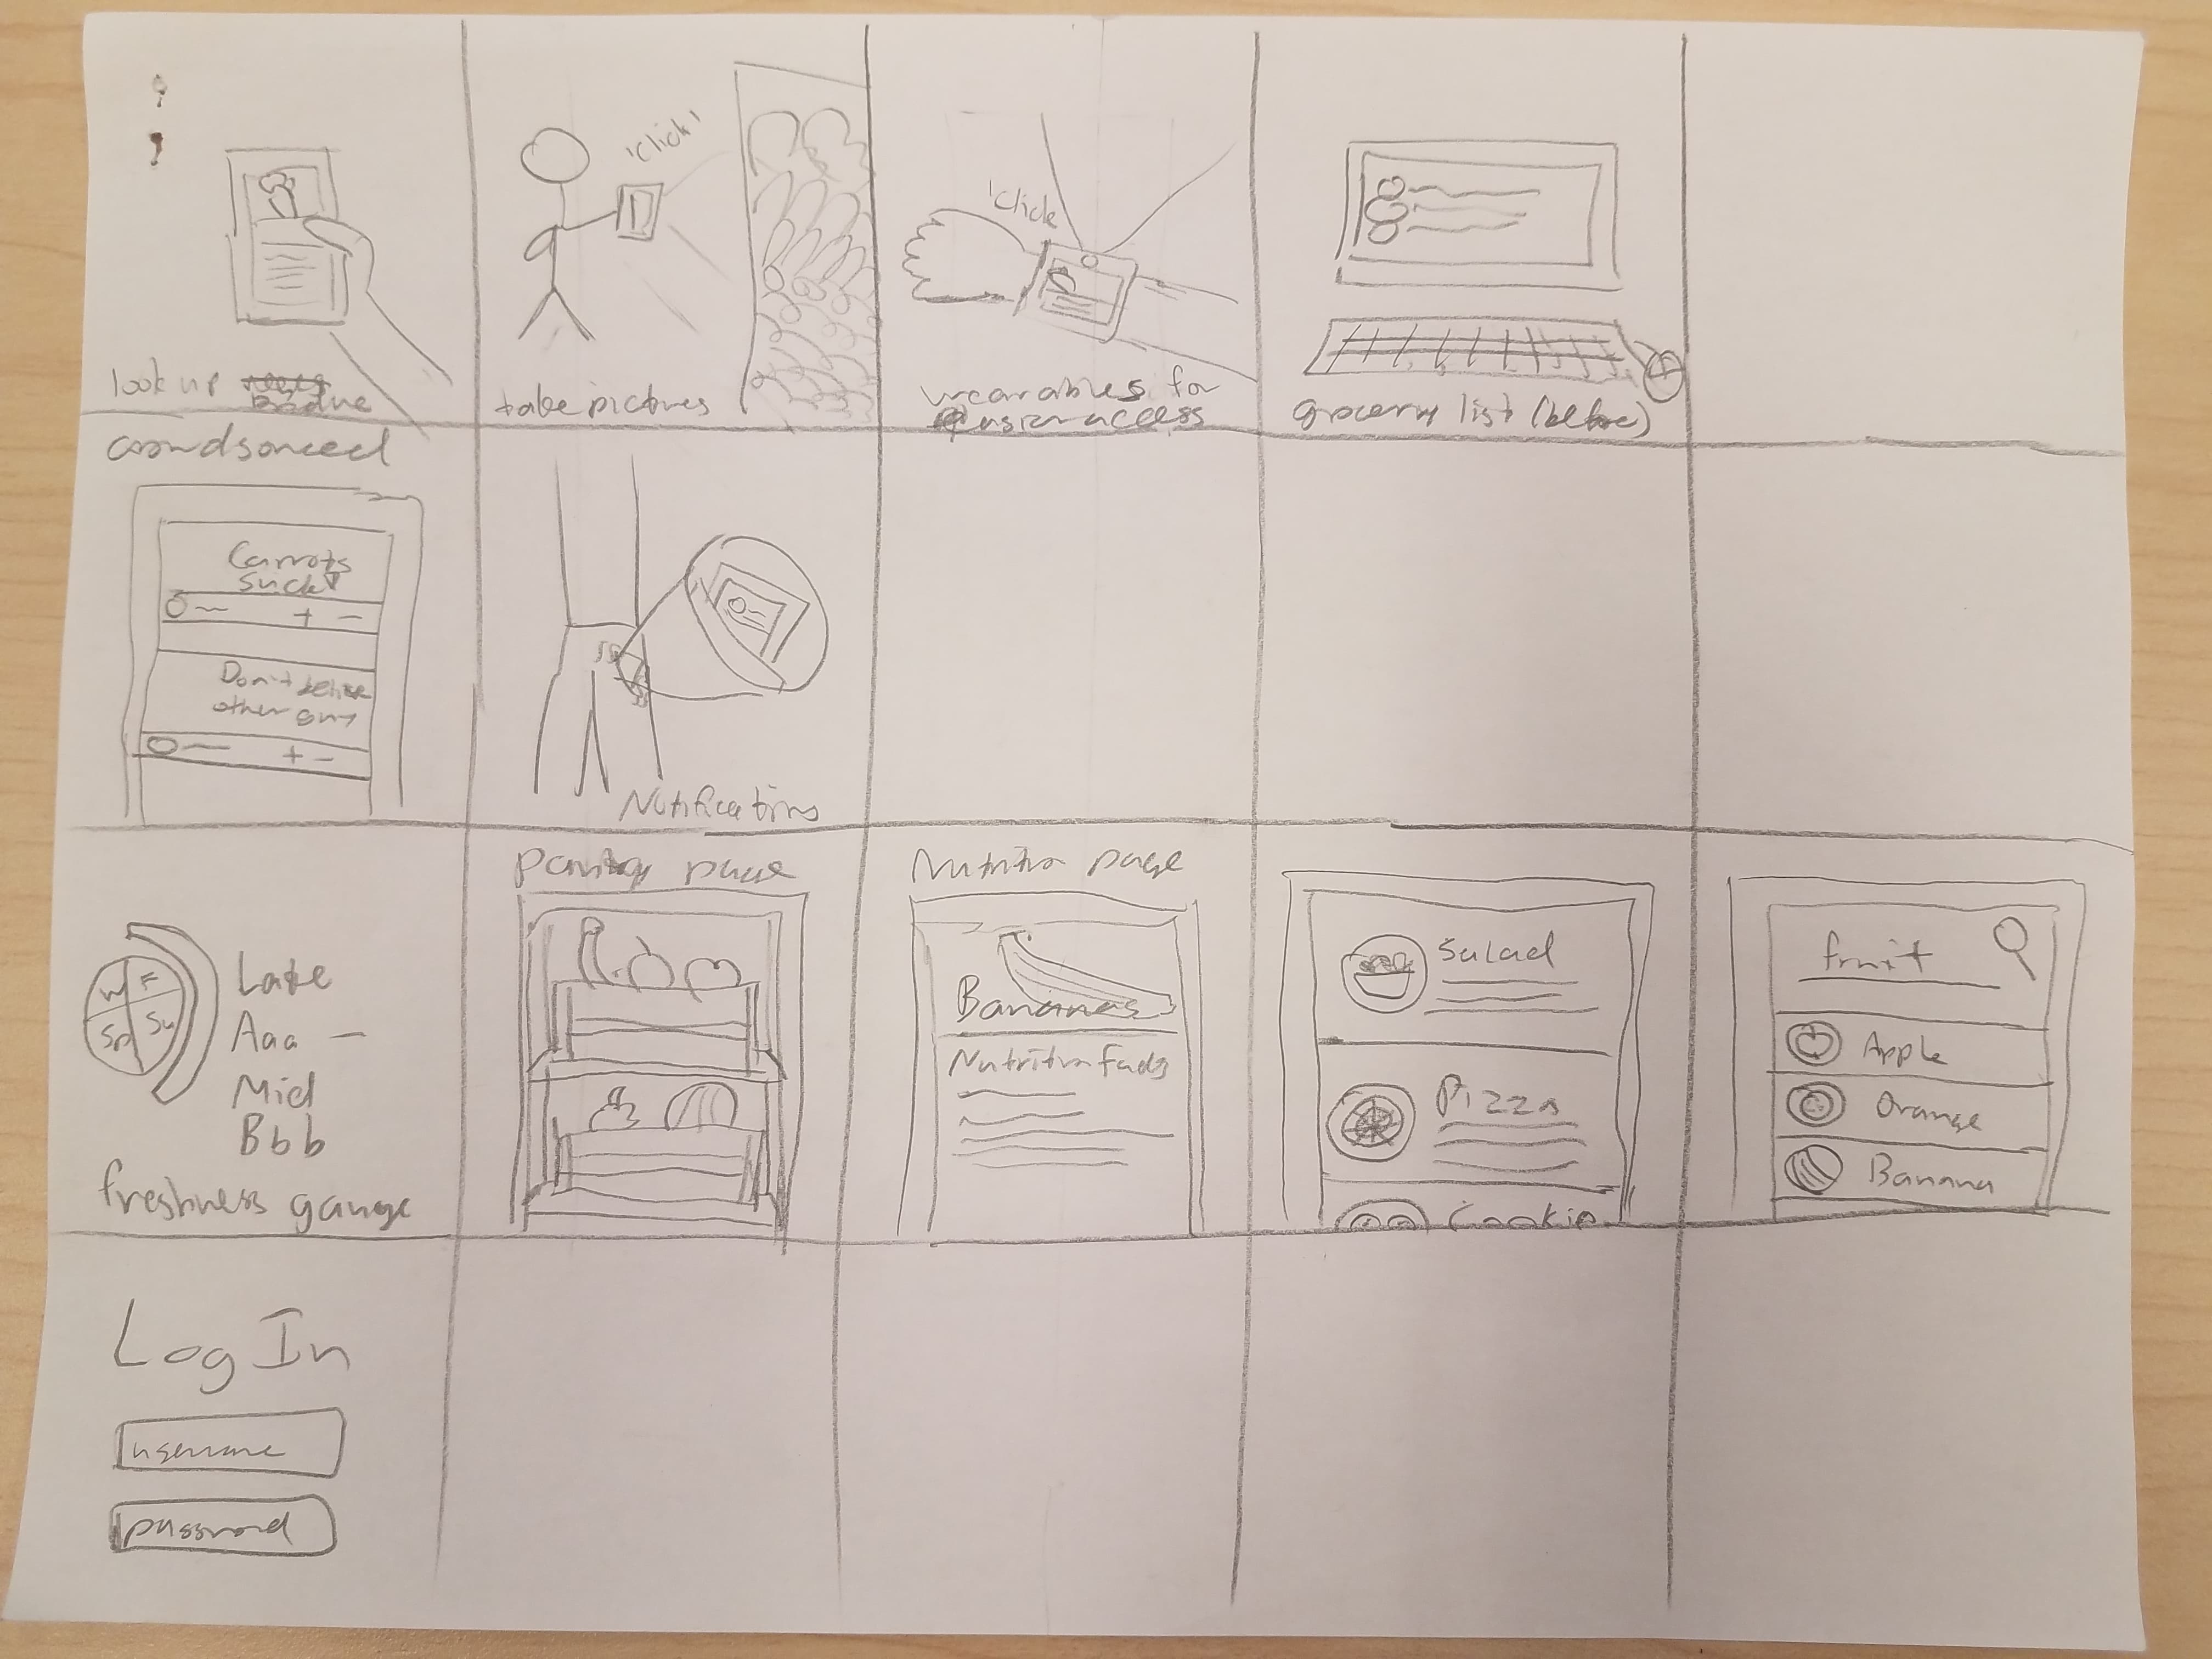 look up
'click'
take pictures
'Click
wearables for
easier access
grocery list (before)
crowdsourced
Carrots
suck!
+ -
Don't believe
other guy
+ -
Notifications
W F
Sp Su
Late
Aaa —
Mid
Bbb
freshness gauge
Pantry page
Nutrition page
Bananas
Nutrition Facts
Salad
Pizza
Cookie
fruit
Apple
Orange
Banana
Log In
username
password